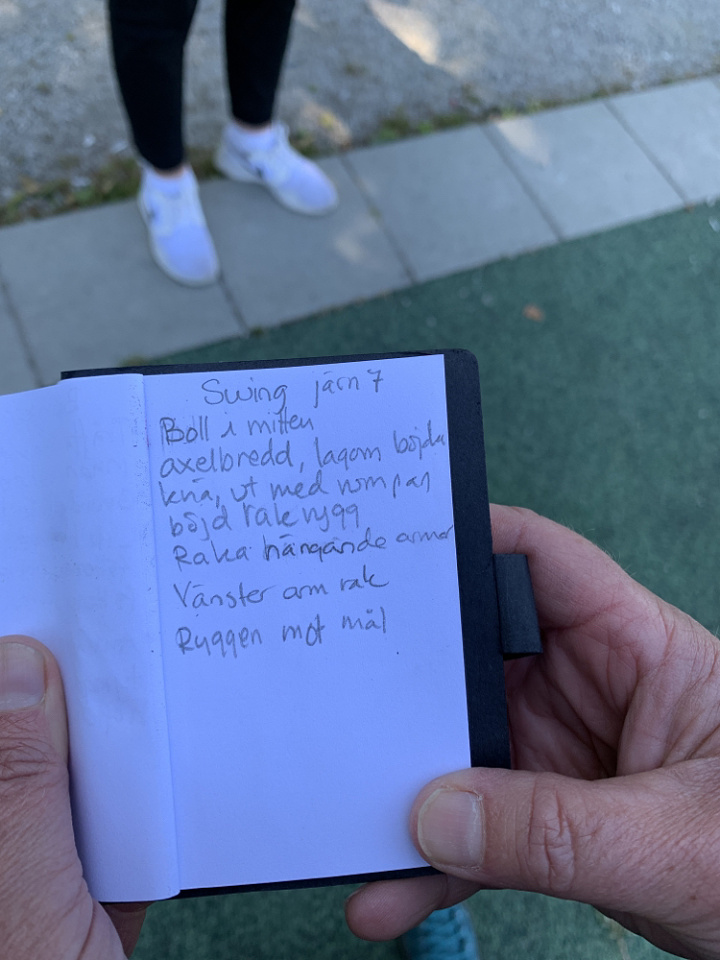 Swing järn 7
Boll i mitten
axelbredd, lagom böjda
knä, ut med rumpan
böjd rak rygg
Raka hängande armar
Vänster arm rak
Ryggen mot mål